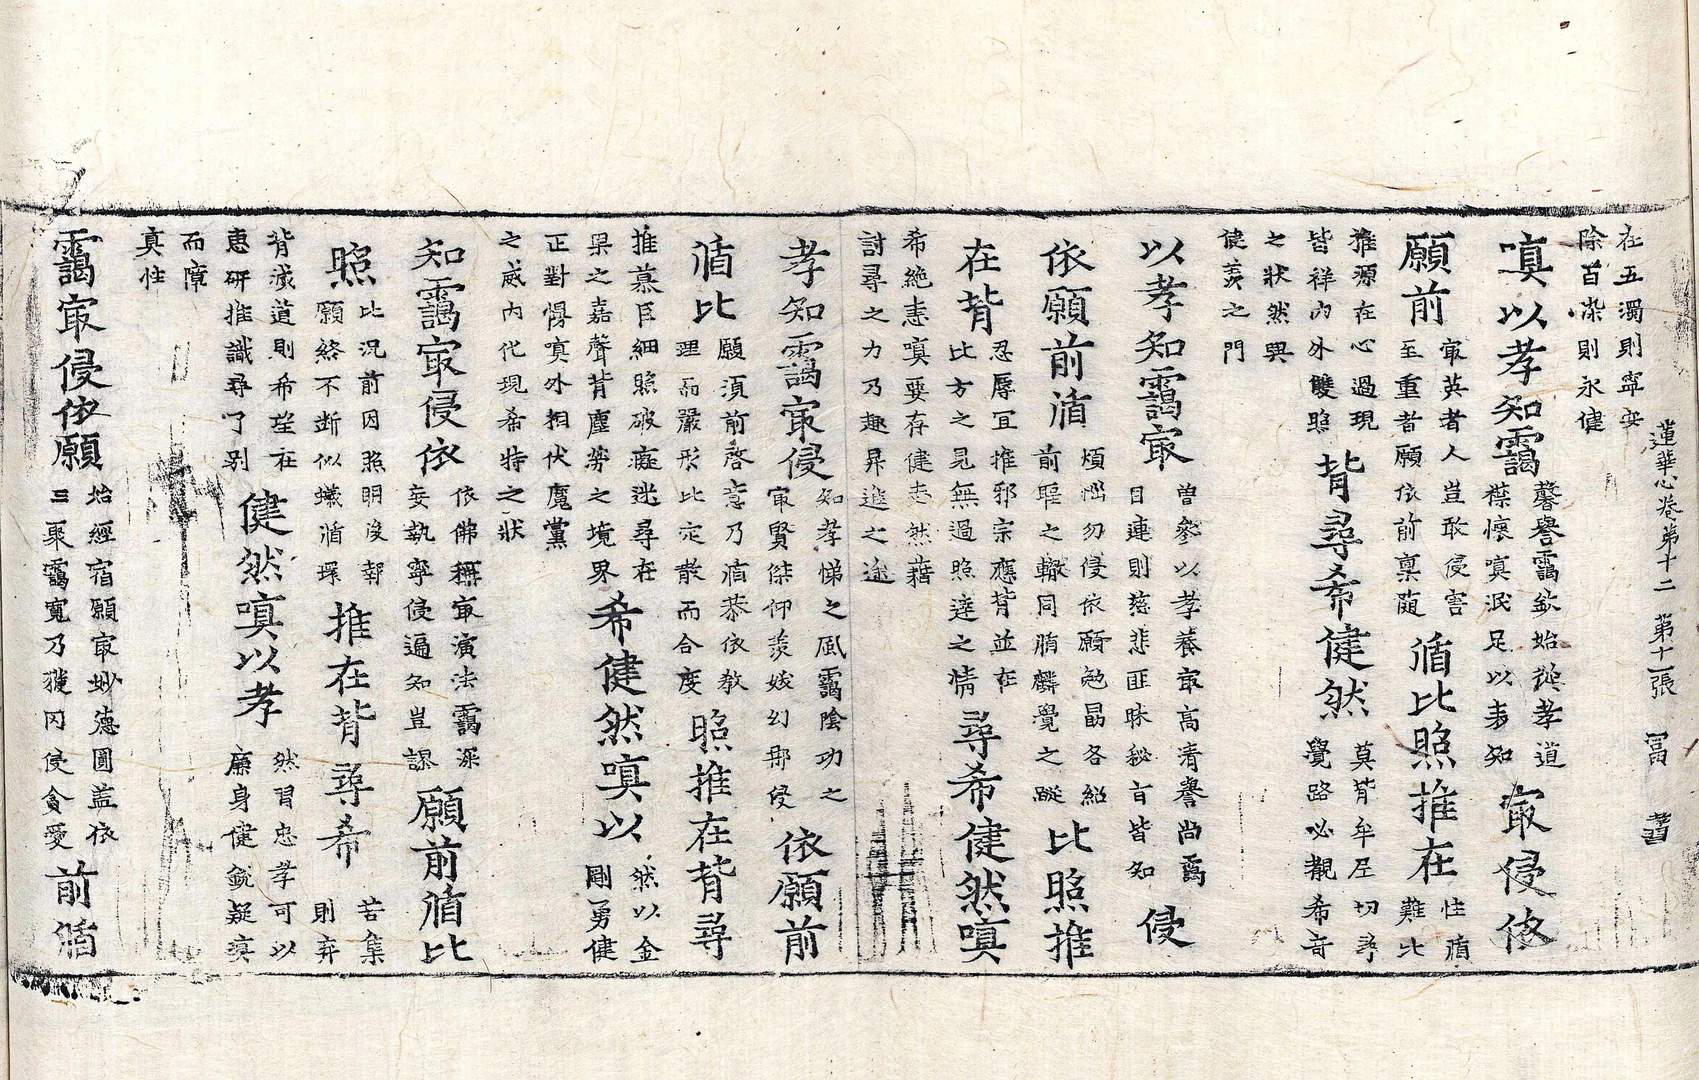 蓮華心卷第十二 第十一張 冨 耆
在五濁則寧妄
除百染則永健
嗔以孝知靄
馨譽靄欽始從孝道
襟懷嗔泯足以事知
最侵依
願前
最英者人豈敢侵害
至重者願依前稟隨
循比照推在
性循
難比
推源在心過現
皆祥內外雙照
背尋希健然
莫背牟尼切尋
覺路必覩希奇
之狀然與
健羨之門
以孝知靄最
曽參以孝養最高清譽尚靄
目連則慈悲匪昧秘旨皆知
侵
依願前循
煩惱勿侵依願勉勗各紹
前聖之轍同循麟覺之蹤
比照推
在背
忍辱宜推邪宗應背並在
比方之見無過照達之情
尋希健然嗔
希絶恚嗔要存健志然藉
討尋之力乃趣昇進之途
孝知靄最侵
知孝悌之風靄陰功之
最賢傑仰羨妓幻那侵
依願前
循比
願須前啓意乃循恭依教
理而嚴形比定散而合度
照推在背尋
推慕臣細照破癡迷尋在
果之嘉聲背塵勞之境界
希健然嗔以
然以金
剛勇健
正對慢嗔外相伏魔黨
之威內化現希特之狀
知靄最侵依
依佛稱最演法靄深
妄執寧侵遍知豈謬
願前循比
照
比況前因照明後報
願終不斷似蟻循環
推在背尋希
苦集
則弃
背滅道則希望在
惠研推識尋了別
健然嗔以孝
然習忠孝可以
廉身健銳疑嗔
而障
真性
靄最侵依願
始經宿願最妙德圓蓋依
三聚靄寬乃獲罔侵貪愛
前循